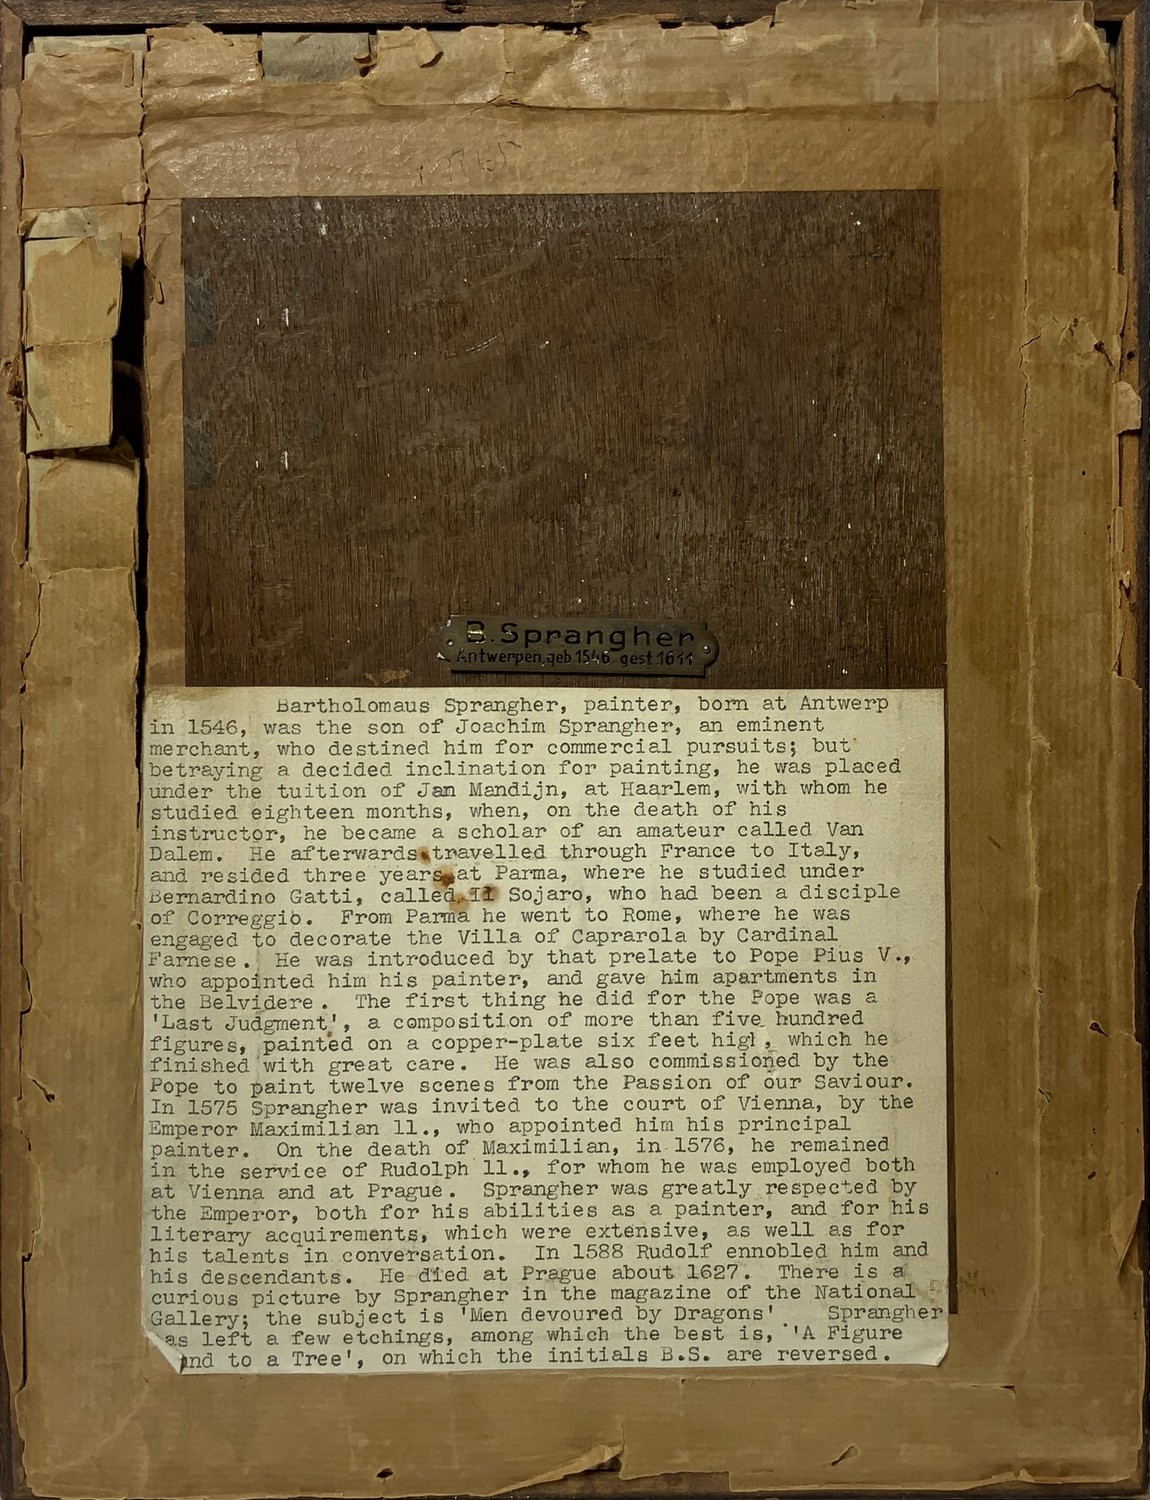 B. Sprangher
Antwerpen, geb. 1546. gest 1611
Bartholomaus Sprangher, painter, born at Antwerp
in 1546, was the son of Joachim Sprangher, an eminent
merchant, who destined him for commercial pursuits; but
betraying a decided inclination for painting, he was placed
under the tuition of Jan Mandijn, at Haarlem, with whom he
studied eighteen months, when, on the death of his
instructor, he became a scholar of an amateur called Van
Dalem. He afterwards travelled through France to Italy,
and resided three years at Parma, where he studied under
Bernardino Gatti, called Il Sojaro, who had been a disciple
of Correggio. From Parma he went to Rome, where he was
engaged to decorate the Villa of Caprarola by Cardinal
Farnese. He was introduced by that prelate to Pope Pius V.,
who appointed him his painter, and gave him apartments in
the Belvidere. The first thing he did for the Pope was a
'Last Judgment', a composition of more than five hundred
figures, painted on a copper-plate six feet high, which he
finished with great care. He was also commissioned by the
Pope to paint twelve scenes from the Passion of our Saviour.
In 1575 Sprangher was invited to the court of Vienna, by the
Emperor Maximilian 11., who appointed him his principal
painter. On the death of Maximilian, in 1576, he remained
in the service of Rudolph 11., for whom he was employed both
at Vienna and at Prague. Sprangher was greatly respected by
the Emperor, both for his abilities as a painter, and for his
literary acquirements, which were extensive, as well as for
his talents in conversation. In 1588 Rudolf ennobled him and
his descendants. He died at Prague about 1627. There is a
curious picture by Sprangher in the magazine of the National
Gallery; the subject is 'Men devoured by Dragons'. Sprangher
as left a few etchings, among which the best is, 'A Figure
nd to a Tree', on which the initials B.S. are reversed.